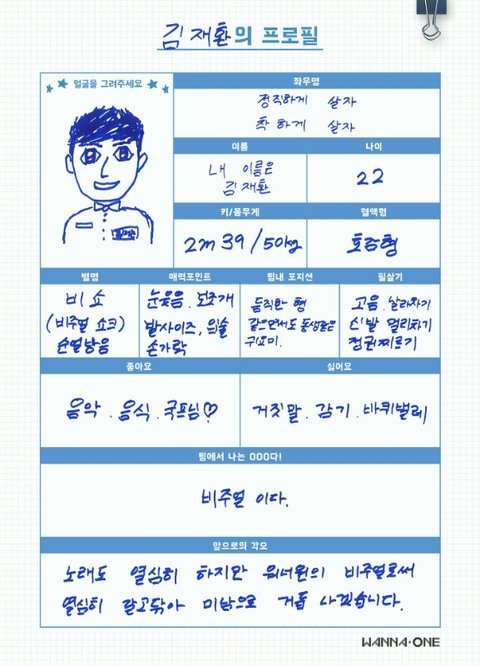 김재환의 프로필
얼굴을 그려주세요
좌우명
정직하게 살자
착하게 살자
이름
나이
내 이름은
김재환
22
키/몸무게
혈액형
2m 39/50kg
호랑형
별명
매력포인트
팀내 포지션
필살기
비쇼
(비주얼 쇼크)
순얼남음
눈웃음. 보조개
발사이즈, 입술
손가락
듬직한 형
같으면서도 동생같은
귀요미.
고음. 날라차기
신발 멀리차기
정권찌르기
좋아요
싫어요
음악. 음식. 국프님♡
거짓말. 감기. 바퀴벌레
팀에서 나는 OOO다!
비주얼 이다.
앞으로의 각오
노래도 열심히 하지만 워너원의 비주얼로써
열심히 갈고닦아 미남으로 거듭 나겠습니다.
WANNA·ONE